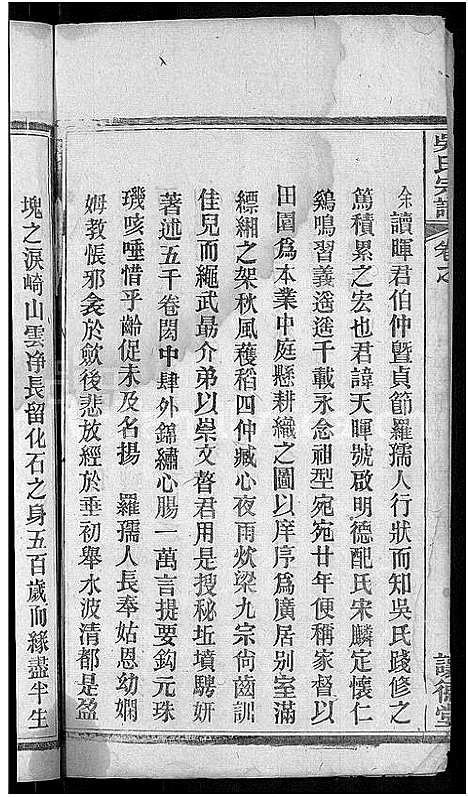 吳氏宗譜
卷之
余讀暉君伯仲暨貞節羅孺人行狀而知吳氏踐修之
篤積累之宏也君諱天暉號啟明德配氏宋麟定懷仁
鷄鳴習義遥遥千載永念祖型宛宛廿年便稱家督以
田園為本業中庭懸耕織之圖以庠序為廣居别室滿
縹緗之架秋風穫稻四仲臧心夜雨炊梁九宗尙齒訓
佳兒而繩武勗介弟以崇文督君用是搜秘坵墳騁妍
著述五千卷閎中肆外錦繡心腸一萬言提要鈎元珠
璣咳唾惜乎齡促未及名揚　羅孺人長奉姑恩幼嫻
姆教悵邪衾於斂後悲放經於垂初舉水波清都是盈
塊之淚崎山雲净長留化石之身五百歲而緣盡半生